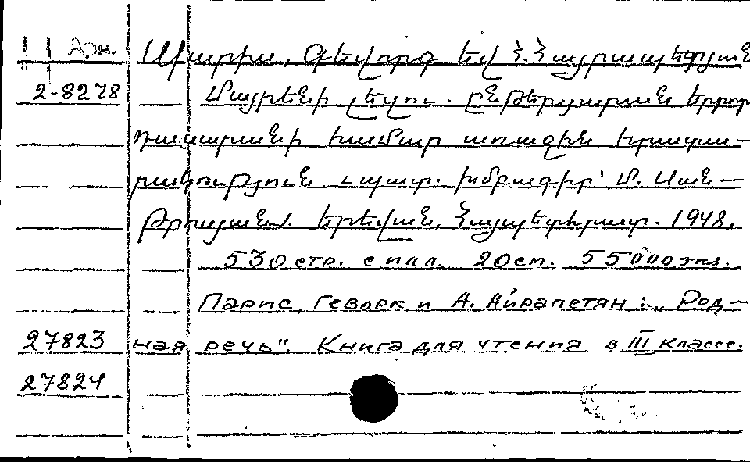 Арм.
2-8278
Գեվորգ եվ Հ. Հայրապետյան
Մայրենի լեզու. ընթերցարան երրորդ
դասարանի համար առաջին հրատա-
րակություն պատ. խմբագիր՝ Մ. Սան-
թրոսյան. Երեվան, Հայպետհրատ. 1948.
530 стр. с илл. 20 ст. 55000 экз.
Парис, Геворк и А. Айрапетян: „Род-
27823 ная речь". Книга для чтения в III классе.
27824